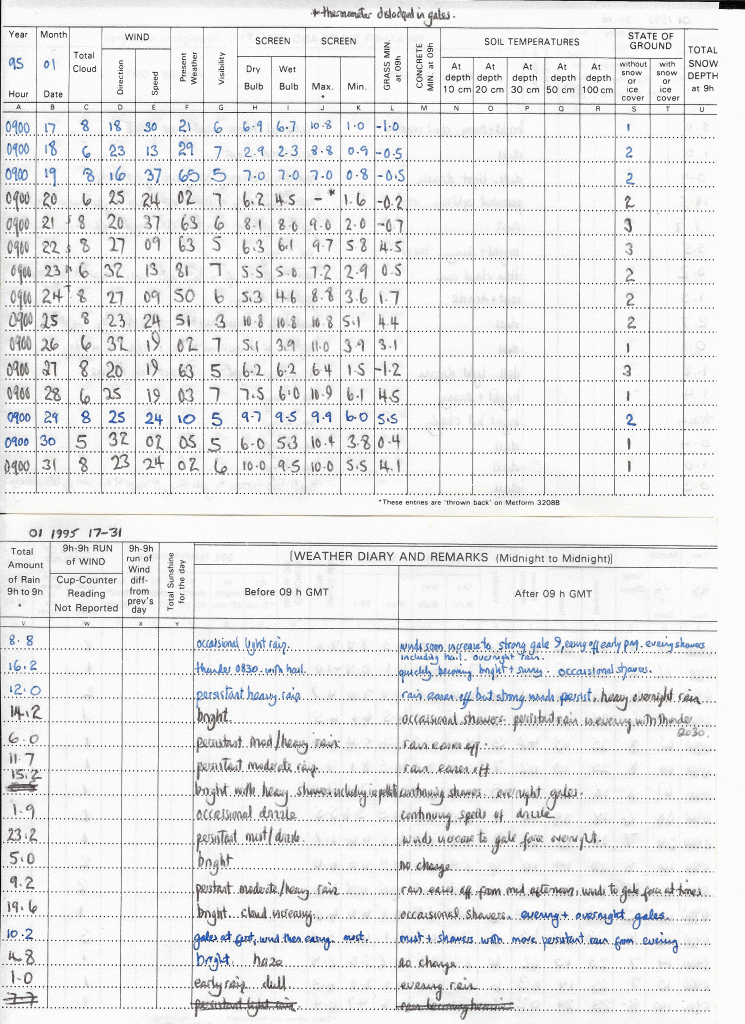 * thermometer dislodged in gales.
Year Month Total Cloud WIND Present Weather Visibility SCREEN SCREEN GRASS MIN. at 09h CONCRETE MIN. at 09h SOIL TEMPERATURES STATE OF GROUND TOTAL SNOW DEPTH at 9h
95 01 Direction Speed Dry Bulb Wet Bulb Max. * Min. At depth 10 cm At depth 20 cm At depth 30 cm At depth 50 cm At depth 100 cm without snow or ice cover with snow or ice cover
Hour Date
A B C D E F G H I J K L M N O P Q R S T U
0900 17 8 18 30 21 6 6.9 6.7 10.8 1.0 -1.0 1
0900 18 6 23 13 29 7 2.9 2.3 8.8 0.9 -0.5 2
0900 19 8 16 37 65 5 7.0 7.0 7.0 0.8 -0.5 2
0900 20 6 25 24 02 7 6.2 4.5 -* 1.6 -0.2 2
0900 21 s 8 20 37 63 6 8.1 8.0 9.0 2.0 -0.7 3
0900 22 s 8 27 09 63 5 6.3 6.1 9.7 5.8 4.5 3
0900 23 M 6 32 13 81 7 5.5 5.0 7.2 2.9 0.5 2
0900 24 T 8 27 09 50 6 5.3 4.6 8.8 3.6 1.7 2
0900 25 8 23 24 51 3 10.8 10.8 10.8 5.1 4.4 2
0900 26 6 32 19 02 7 5.1 3.9 11.0 3.9 3.1 1
0900 27 8 20 19 63 5 6.2 6.2 6.4 1.5 -1.2 3
0900 28 6 25 19 03 7 7.5 6.0 10.9 6.1 4.5 1
0900 29 8 25 24 10 5 9.7 9.5 9.9 6.0 5.5 2
0900 30 5 32 02 05 5 6.0 5.3 10.4 3.8 0.4 1
0900 31 8 23 24 02 6 10.0 9.5 10.0 5.5 4.1 1
*These entries are 'thrown back' on Metform 3208B
01 1995 17-31
Total Amount of Rain 9h to 9h * 9h-9h RUN of WIND Cup-Counter Reading Not Reported 9h-9h run of Wind diff- from prev's day Total Sunshine for the day (WEATHER DIARY AND REMARKS (Midnight to Midnight))
Before 09 h GMT After 09 h GMT
V W X Y
8.8 occasional light rain. winds soon increase to strong gale 9, easing off early pm. evening showers
including hail. overnight rain.
16.2 thunder 0830. with hail. quickly becoming bright + sunny. occasional showers.
12.0 persistent heavy rain rain eases off but strong winds persist, heavy overnight rain
14.2 bright occasional showers. persistent rain in evening with thunder
2030.
6.0 persistent mod/heavy rain rain eases off.
11.7 persistent moderate rain rain eases off
15.2 bright with heavy showers including ice pellets continuing showers overnight gales.
1.9 occasional drizzle continuing spells of drizzle
23.2 persistent mist/drizzle winds increase to gale force overnight.
5.0 bright no change
9.2 persistent moderate/heavy rain rain eases off from mid afternoon, winds to gale force at times
19.6 bright. cloud increasing. occasional showers. evening + overnight gales.
10.2 gales at first, wind then easing. mist. mist + showers with more persistent rain from evening
4.8 bright. haze no change
1.0 early rain dull evening rain
7.7 persistent light rain. rain becoming heavier